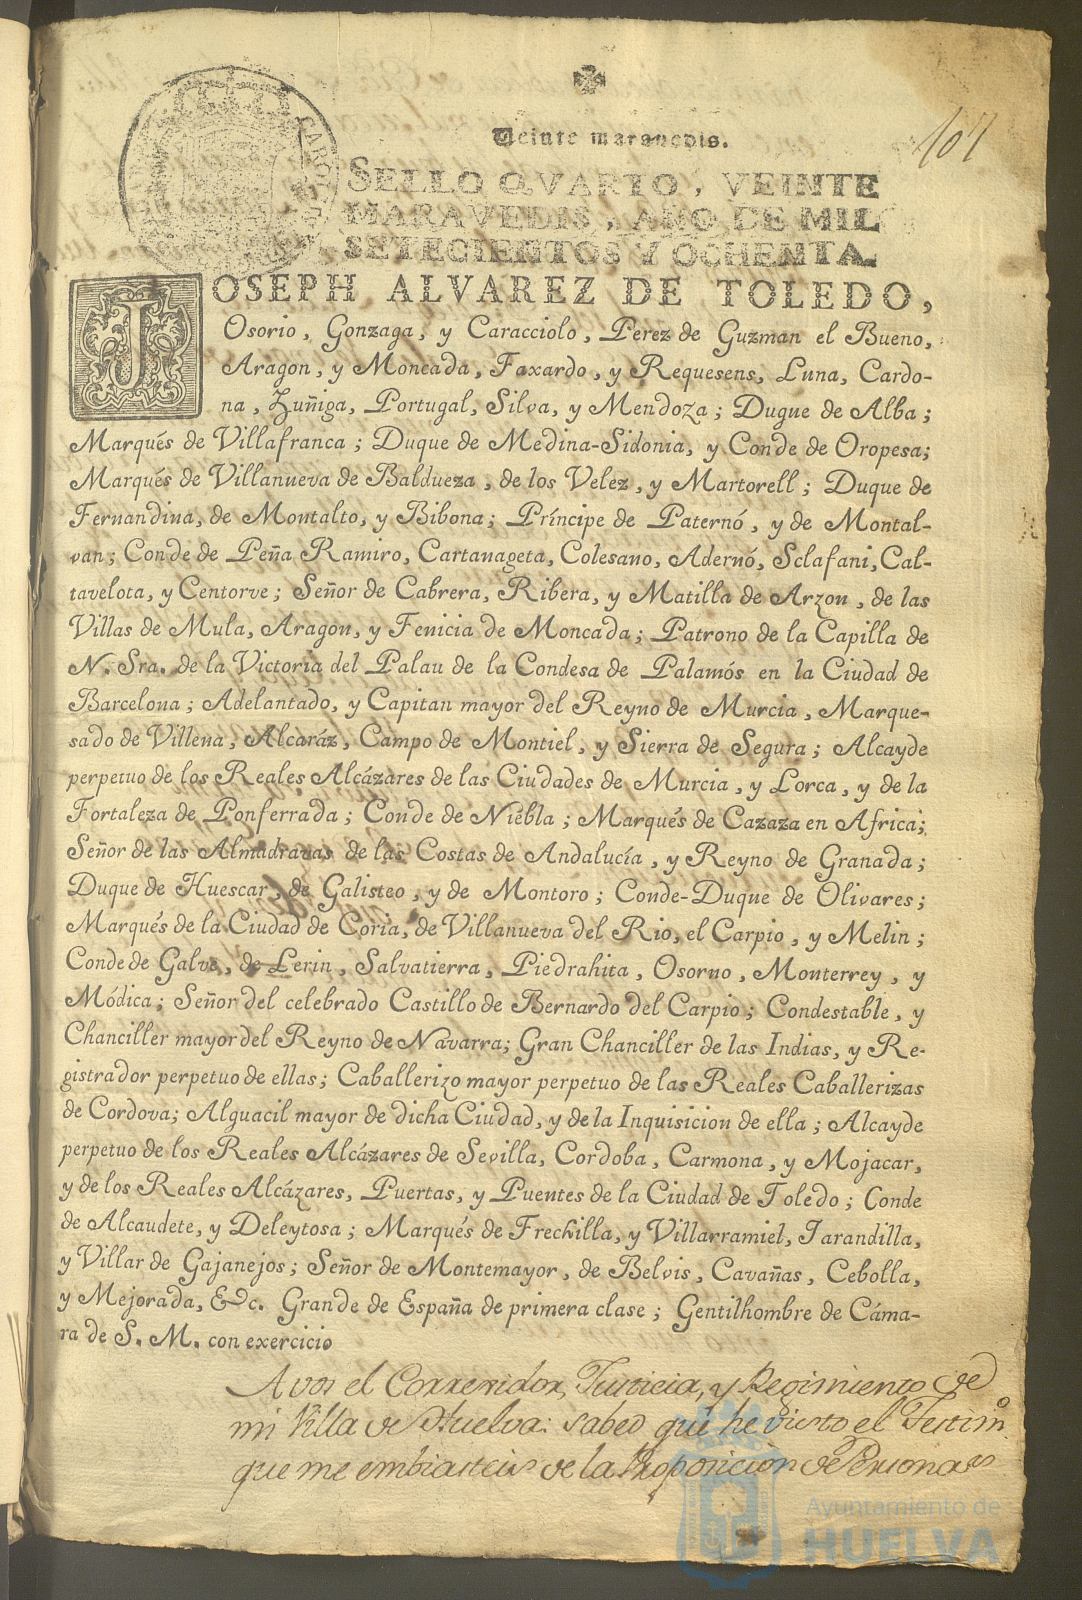 107
Veinte maravedis.
SELLO QVARTO, VEINTE
MARAVEDIS, AÑO DE MIL
SETECIENTOS Y OCHENTA.
JOSEPH ALVAREZ DE TOLEDO,
Osorio, Gonzaga, y Caracciolo, Perez de Guzman el Bueno,
Aragon, y Moncada, Faxardo, y Requesens, Luna, Cardo-
na, Zuñiga, Portugal, Silva, y Mendoza; Duque de Alba;
Marqués de Villafranca; Duque de Medina-Sidonia, y Conde de Oropesa;
Marqués de Villanueva de Baldueza, de los Velez, y Martorell; Duque de
Fernandina, de Montalto, y Bibona; Príncipe de Paternó, y de Montal-
van; Conde de Peña Ramiro, Cartanageta, Colesano, Adernó, Sclafani, Cal-
tavelota, y Centorve; Señor de Cabrera, Ribera, y Matilla de Arzon, de las
Villas de Mula, Aragon, y Fenicia de Moncada; Patrono de la Capilla de
N. Sra. de la Victoria del Palau de la Condesa de Palamós en la Ciudad de
Barcelona; Adelantado, y Capitan mayor del Reyno de Murcia, Marque-
sado de Villena, Alcaráz, Campo de Montiel, y Sierra de Segura; Alcayde
perpetuo de los Reales Alcázares de las Ciudades de Murcia, y Lorca, y de la
Fortaleza de Ponferrada; Conde de Niebla; Marqués de Cazaza en Africa;
Señor de las Almadravas de las Costas de Andalucía, y Reyno de Granada;
Duque de Huescar, de Galisteo, y de Montoro; Conde-Duque de Olivares;
Marqués de la Ciudad de Coria, de Villanueva del Rio, el Carpio, y Melin;
Conde de Galve, de Lerin, Salvatierra, Piedrahita, Osorno, Monterrey, y
Módica; Señor del celebrado Castillo de Bernardo del Carpio; Condestable, y
Chanciller mayor del Reyno de Navarra; Gran Chanciller de las Indias, y Re-
gistrador perpetuo de ellas; Caballerizo mayor perpetuo de las Reales Caballerizas
de Cordova; Alguacil mayor de dicha Ciudad, y de la Inquisicion de ella; Alcayde
perpetuo de los Reales Alcázares de Sevilla, Cordoba, Carmona, y Mojacar,
y de los Reales Alcázares, Puertas, y Puentes de la Ciudad de Toledo; Conde
de Alcaudete, y Deleytosa; Marqués de Frechilla, y Villarramiel, Jarandilla,
y Villar de Gajanejos; Señor de Montemayor, de Belvis, Cavañas, Cebolla,
y Mejorada, &c. Grande de España de primera clase; Gentilhombre de Cáma-
ra de S. M. con exercicio
A vos el Corregidor, Justicia, y Regimiento de
mi Villa de Huelva: sabed que he visto el Testimº
que me embiasteis de la Proposicion de Personas
Ayuntamiento de
HUELVA